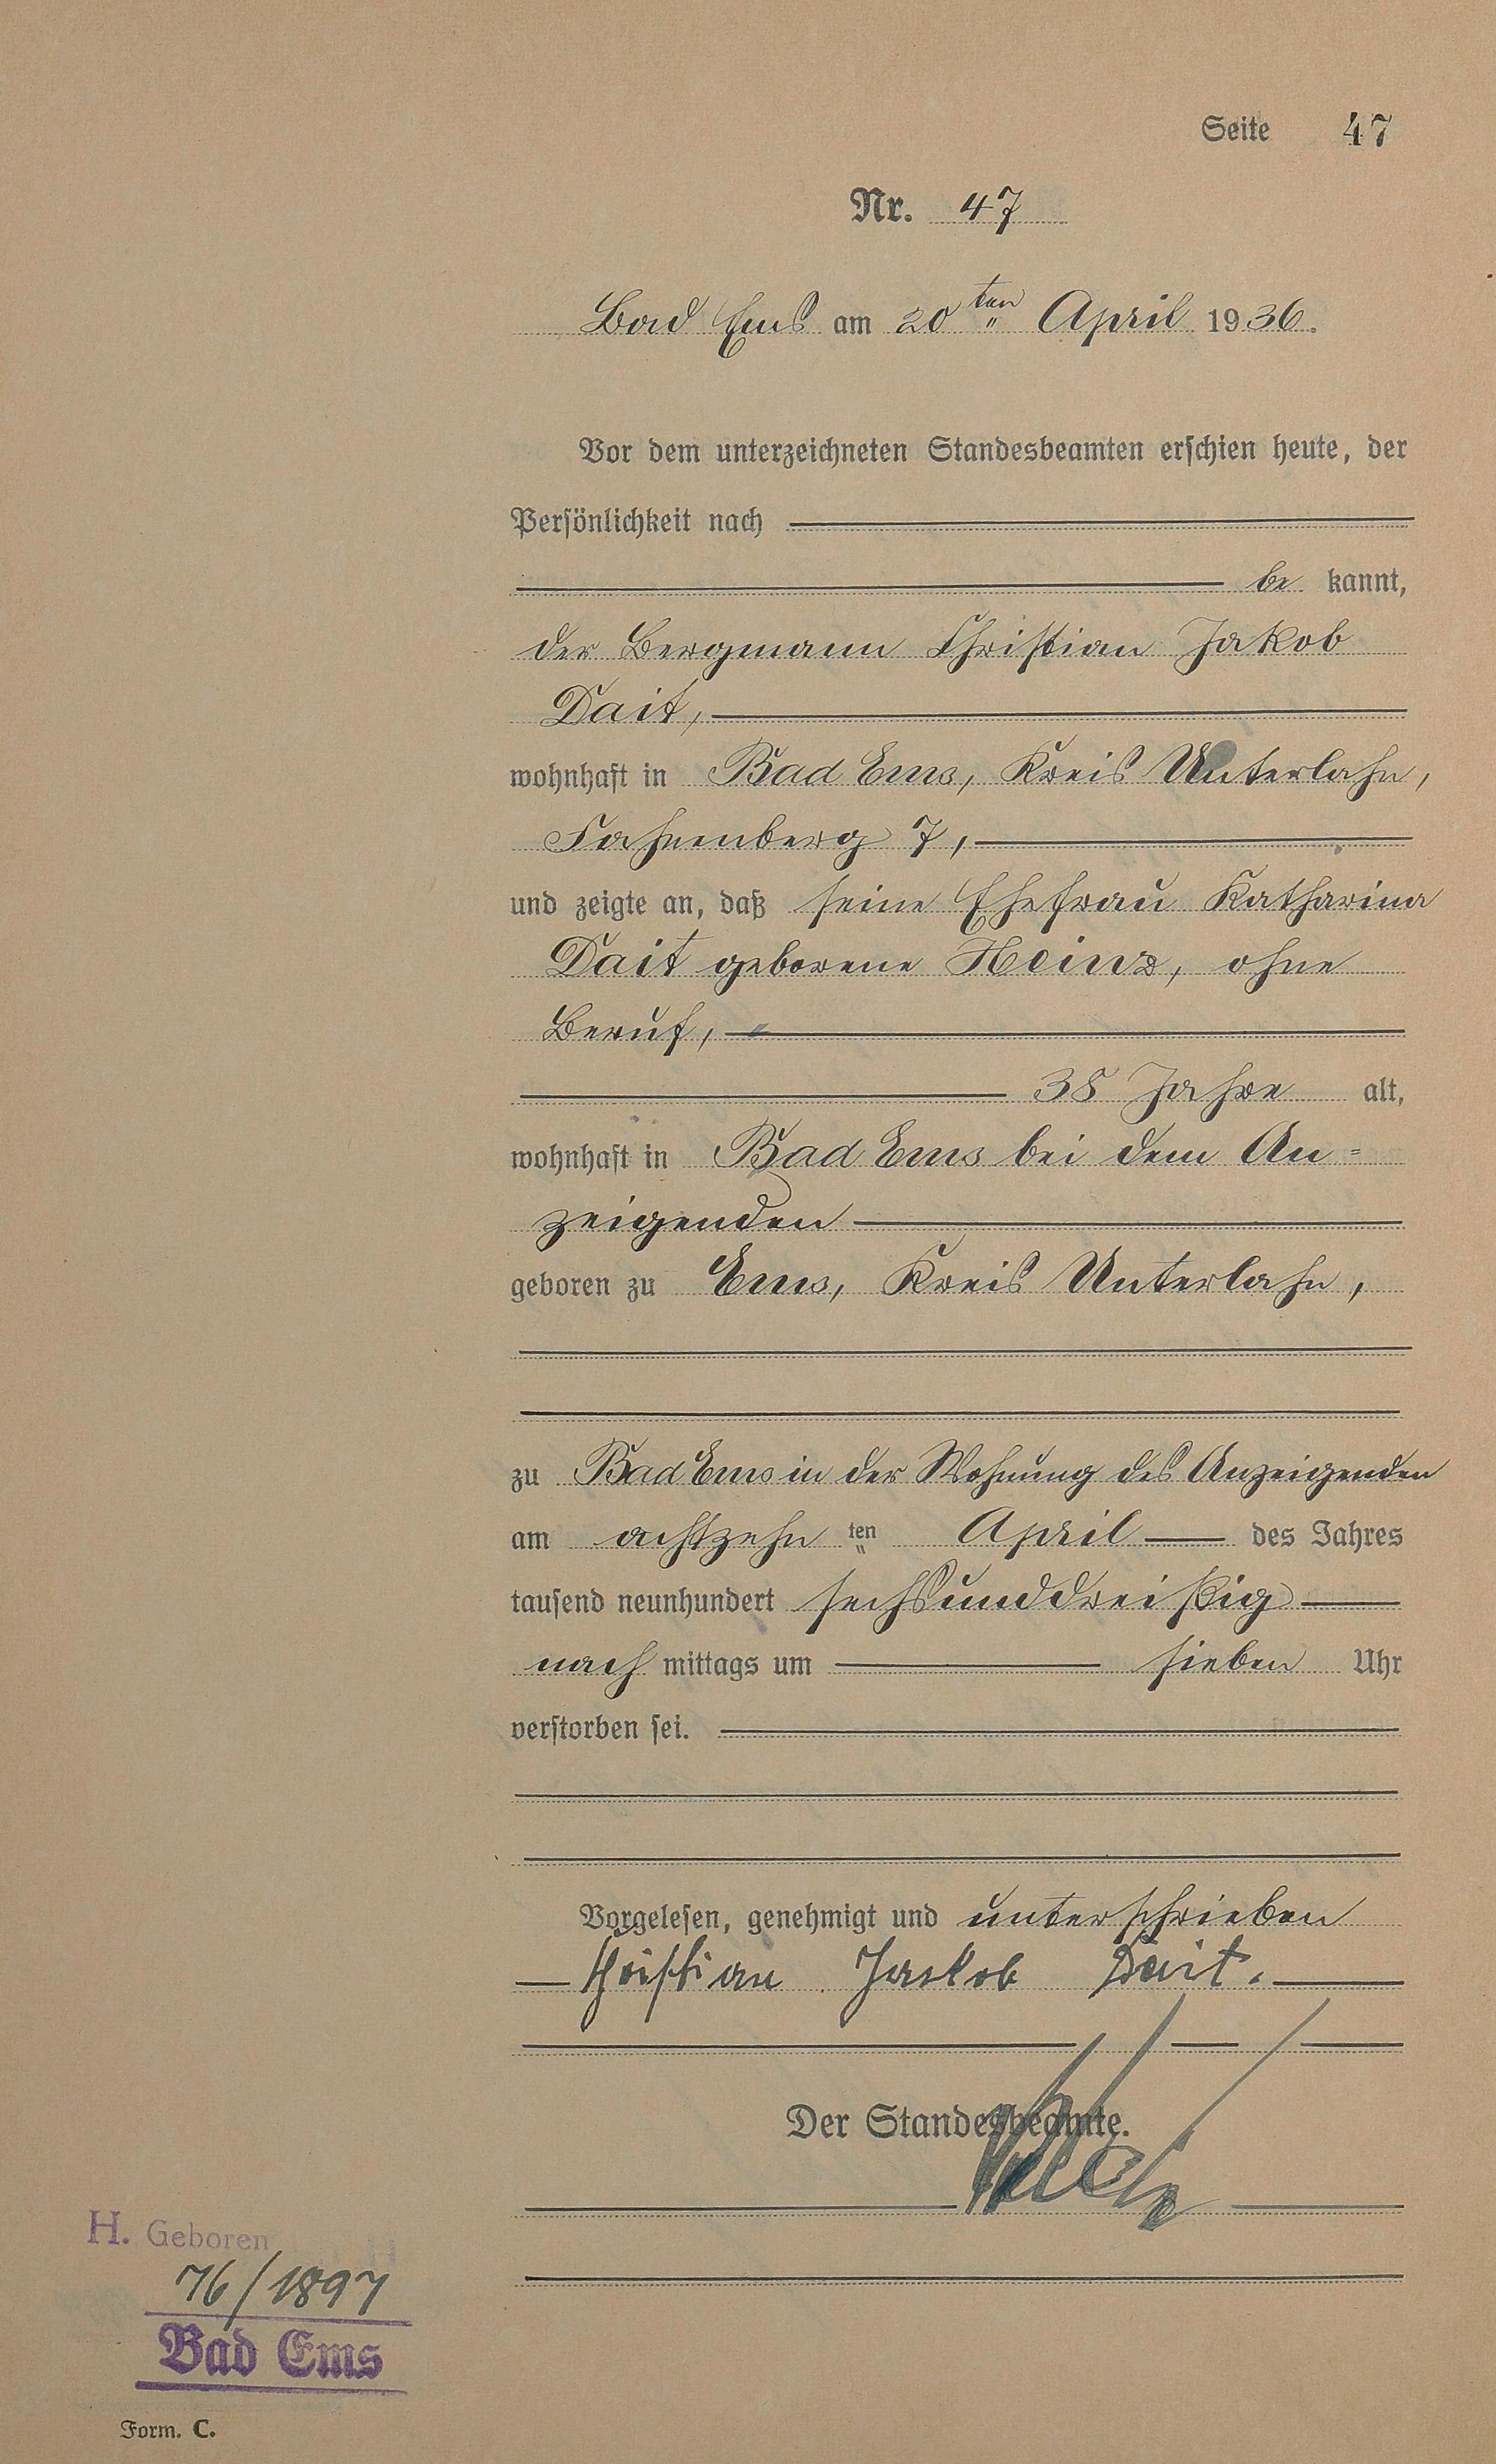 Seite 47
Nr. 47
Bad Ems am 20ten April 1936.
Vor dem unterzeichneten Standesbeamten erschien heute, der
Persönlichkeit nach
be kannt,
der Bergmann Christian Jakob
Dait,
wohnhaft in Bad Ems, Kreis Unterlahn,
Fahnenberg 7,
und zeigte an, daß seine Ehefrau Katharina
Dait geborene Heinz, ohne
Beruf,
38 Jahre alt,
wohnhaft in Bad Ems bei dem An=
zeigenden
geboren zu Ems, Kreis Unterlahn,
zu Bad Ems in der Wohnung des Anzeigenden
am achtzehn ten April des Jahres
tausend neunhundert sechsunddreißig
nach mittags um sieben Uhr
verstorben sei.
Vorgelesen, genehmigt und unterschrieben
Christian Jackob Dait.
Der Standesbeamte.
H. Geboren
76/1897
Bad Ems
Form. C.